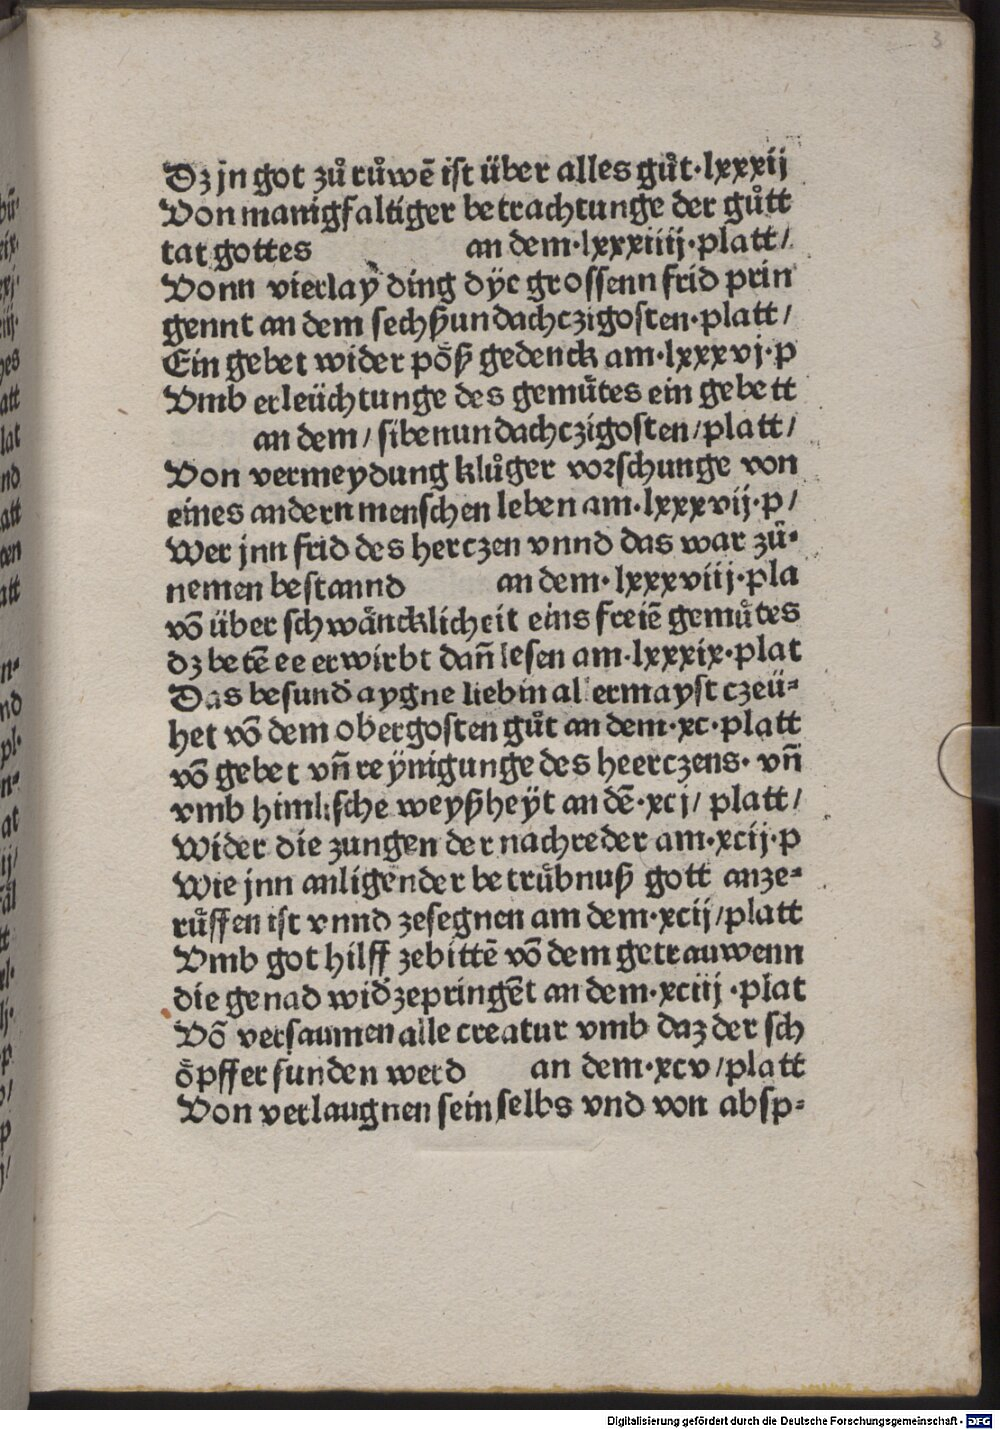 3
Dz jn got zuͦ ruͦwē ist über alles guͦt·lxxxij
Von manigfaltiger betrachtunge der guͦtt
tat gottes an dem·lxxxiiij·platt/
Vonn vierlaÿ ding dÿe grossenn frid prin
gennt an dem sechßundachczigosten·platt/
Ein gebet wider pöß gedenck am·lxxxvj·p
Vmb erleüchtunge des gemuͤtes ein gebett
an dem/sibenundachczigosten/platt/
Von vermeydung kluͦger vorschunge von
eines andern menschen leben am·lxxxvij·p/
Wer jnn frid des herczen vnnd das war zuͦ-
nemen bestannd an dem·lxxxviij·pla
vō über schwäncklicheit eins freiē gemuͤtes
dz betē ee erwirbt dañ lesen am·lxxxix·plat
Das besund aygne lieb in allermayst czeü-
het vō dem obergosten guͦt an dem·xc·platt
vō gebet vñ reÿnigunge des heerczens· vñ
vmb himlische weyßheÿt an dē·xcj/platt/
Wider die zungen der nachreder am·xcij·p
Wie jnn anligender betruͤbnuß gott anze-
ruͤffen ist vnnd zesegnen am dem·xcij/platt
Vmb got hilff zebittē vō dem getrauwenn
die genad wid᷑zepringēt an dem·xciij·plat
Vō versaumen alle creatur vmb daz der sch
öpffer funden werd an dem·xcv/platt
Von verlaugnen sein selbs vnd von absp-
Digitalisierung gefördert durch die Deutsche Forschungsgemeinschaft - DFG